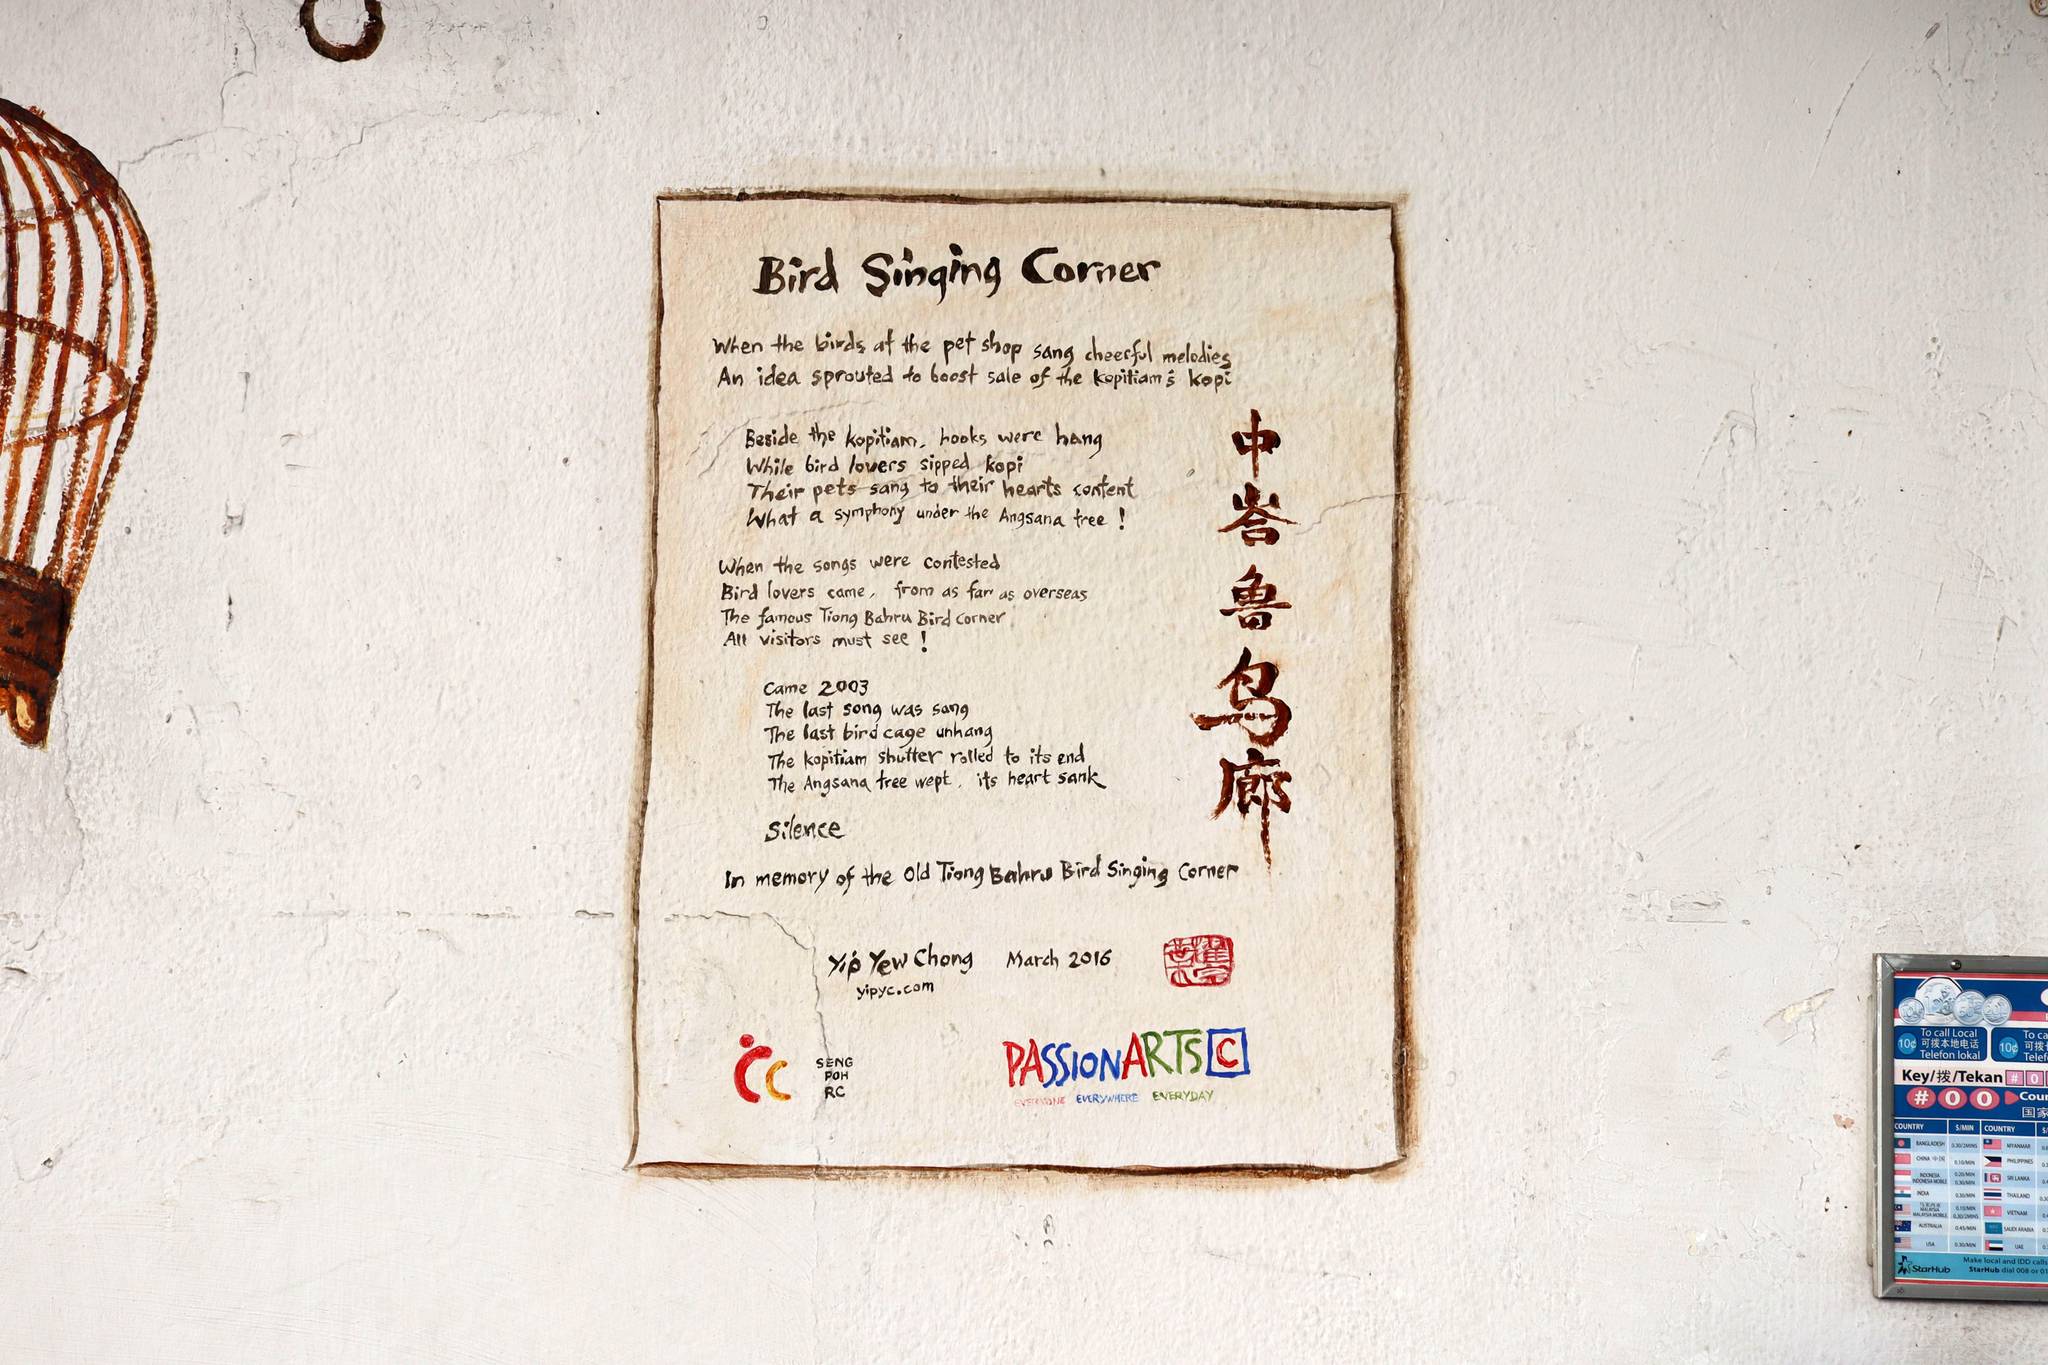 Bird Singing Corner
When the birds at the pet shop sang cheerful melodies
An idea sprouted to boost sale of the kopitiam's kopi
Beside the kopitiam, hooks were hang
While bird lovers sipped kopi
Their pets sang to their hearts content
What a symphony under the Angsana tree !
When the songs were contested
Bird lovers came, from as far as overseas
The famous Tiong Bahru Bird Corner
All visitors must see !
Came 2003
The last song was sang
The last bird cage unhang
The kopitiam shutter rolled to its end
The Angsana tree wept, its heart sank
Silence
In memory of the Old Tiong Bahru Bird Singing Corner
中
峇
鲁
鸟
廊
Yip Yew Chong March 2016
yipyc.com
CC
SENG
POH
RC
PASSIONARTS C
EVERYONE EVERYWHERE EVERYDAY
To call Local
10¢ 可拨本地电话
Telefon lokal
10¢
Key/拨/Tekan # 0
# 0 0
国家
COUNTRY S/MIN COUNTRY
BANGLADESH 0.30/2MINS MYANMAR
CHINA 中国 0.10/MIN PHILIPPINES
INDONESIA 0.20/MIN SRI LANKA
INDONESIA MOBILE 0.30/MIN
INDIA 0.30/MIN THAILAND
MALAYSIA 0.10/MIN VIETNAM
MALAYSIA MOBILE 0.30/2MINS
AUSTRALIA 0.45/MIN SAUDI ARABIA
USA 0.30/MIN UAE
StarHub
Make local and IDD calls
StarHub dial 008 or